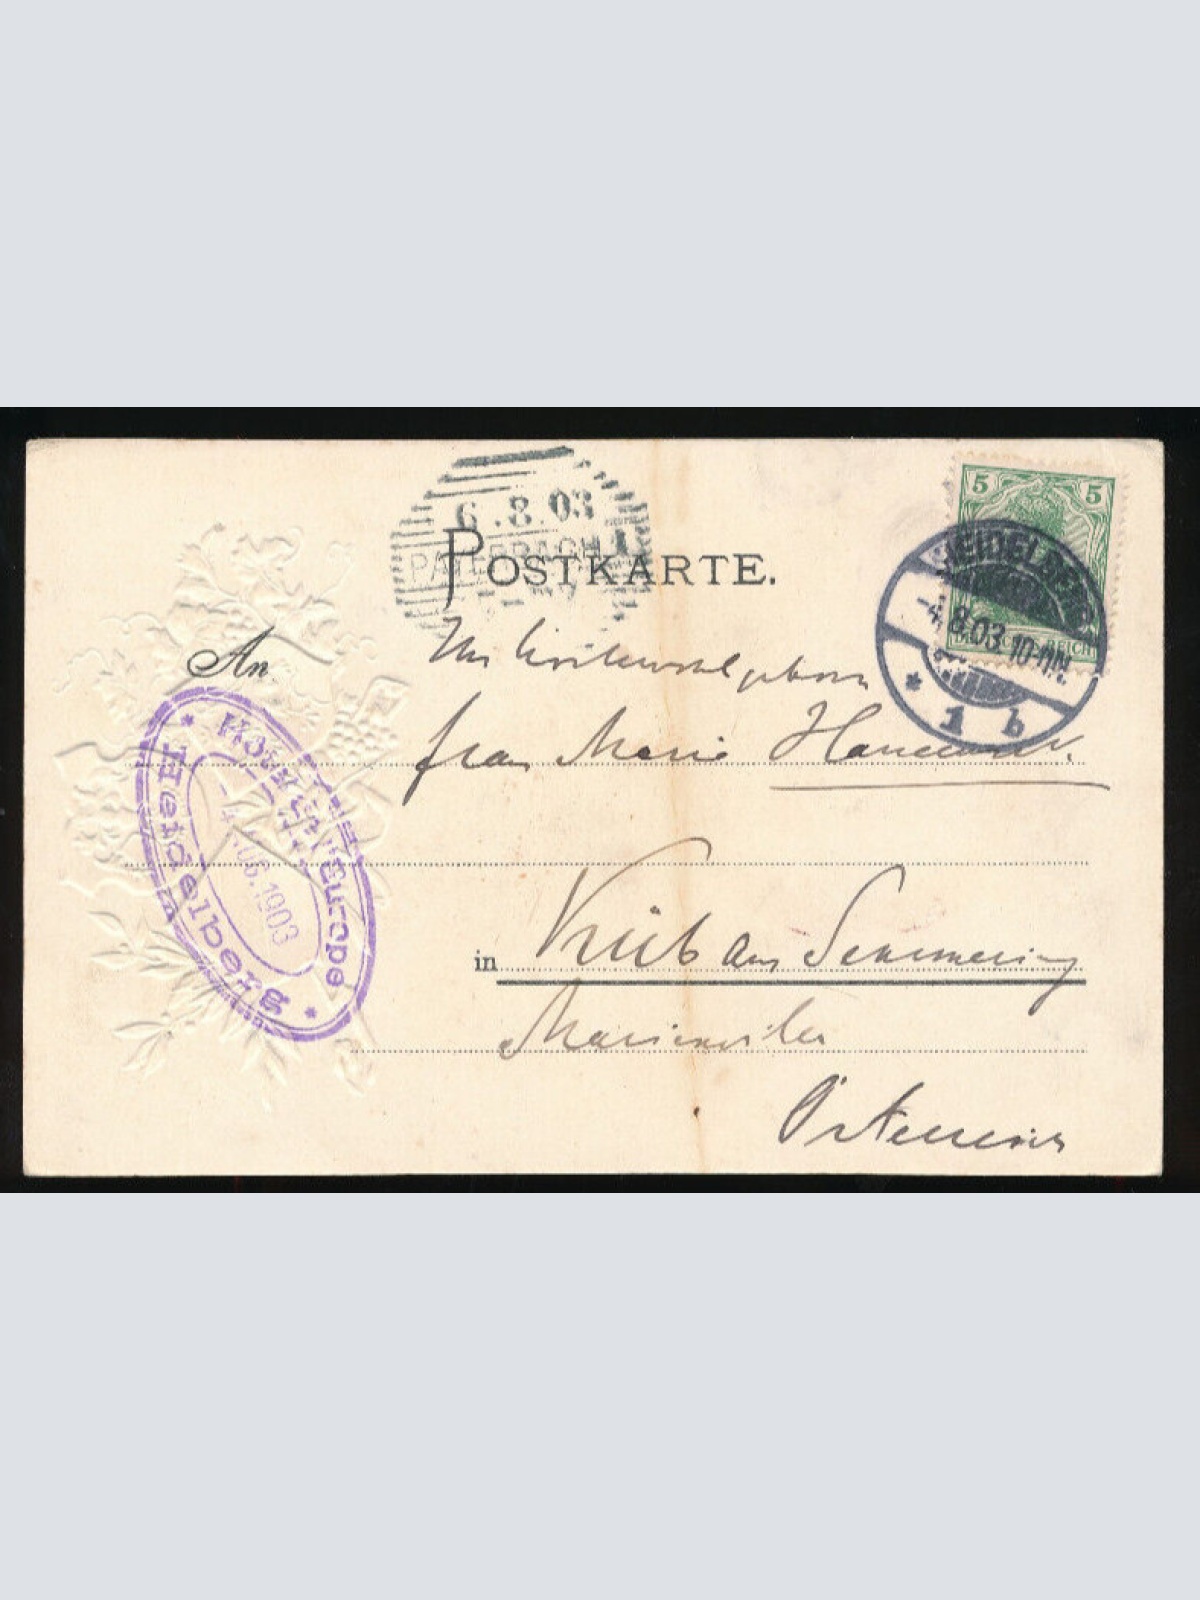 5 5
HEIDELBERG
-4.8.03.10-11N.
* 1 b
6.8.03
PAYERBACH
POSTKARTE.
An
Frau Marie
in Küb am Semmering
Österreich
* Hotel de l'Europe *
Heidelberg
1903